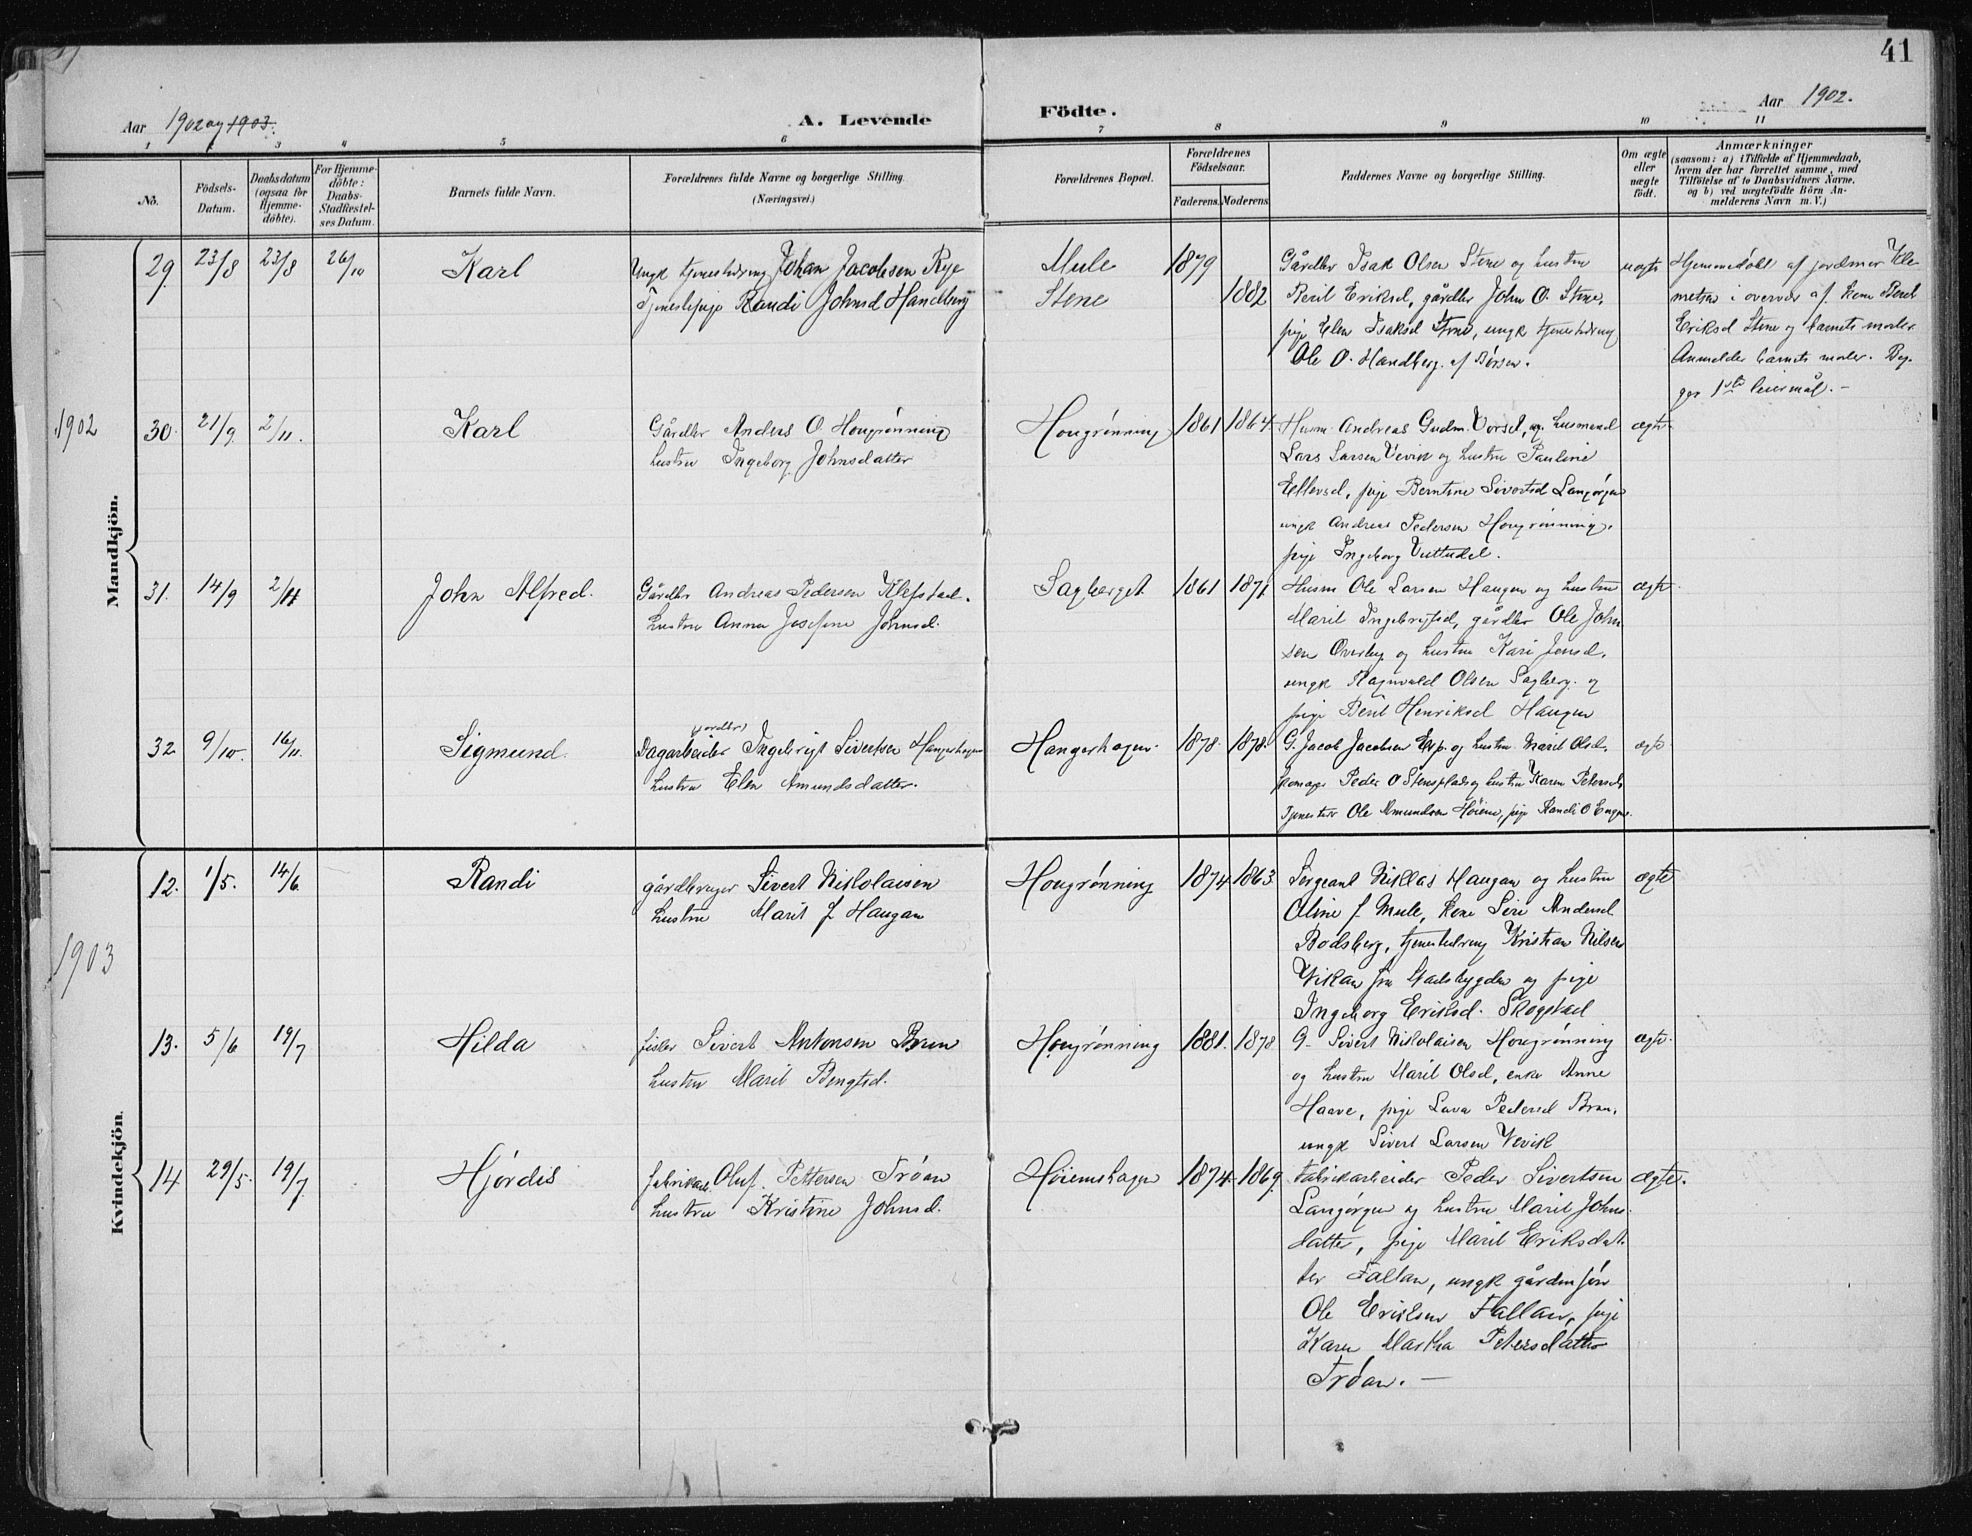 41
Aar 1902 og 1903.
A. Levende
Födte.
Aar 1902.
1 2 3 4 5 6 7 8 9 10 11
No.
Födsels-Datum.
Daabsdatum (ogsaa for Hjemme-döbte).
For Hjemme-döbte: Daabs-Stadfæstel-ses Datum.
Barnets fulde Navn.
Forældrenes fulde Navne og borgerlige Stilling.
(Næringsvei.)
Forældrenes Bopæl.
Forældrenes Födselsaar.
Faderens. Moderens.
Faddernes Navne og borgerlige Stilling.
Om ægte eller uægte födt.
Anmærkninger
(saasom: a) i Tilfælde af Hjemmedaab,
hvem der har forrettet samme, med
Tilföielse af to Daabsvidners Navne,
og b) ved uegtefödte Börn An-
melderens Navn m. V.)
Mandkjön.
1902
29. 23/8 23/8 26/10 Karl
Ungk tjenestedreng Johan Jacobsen Rye
Tjenestepige Randi Johnsd Handberg
Mule 1879
Stene 1882
Gårdbr Isak Olsen Stene og hustru
Beril Eriksd, gårdbr John O. Stene,
pige Elen Isaksd Stene, ungk tjenestedreng
Ole O. Handberg af Børsen.
uægte
Hjemmedøbt af jordmor Kle
metsen i overvær af kone Beret
Eriksd Stene og barnets moder.
Anmelder barnets moder. Beg-
ges 1ste leiermål.-
30. 21/9 2/11. Karl
Gårdbr Andreas O. Hougrønning
hustru Ingeborg Johnsdatter
Hougrønning 1861 1864
Husm. Andreas Gudm. Vorsel, og husmand
Lars Larsen Vevik og hustru Pauline
Ellevsd, pige Berntine Sivertsd Langørgen
ungk Andreas Pedersen Hougrønning,
pige Ingeborg
ægte
31. 14/9 2/11 John Alfred.
Gårdbr Andreas Pedersen Klefstad.
hustru Anna Josefine Johnsd.
Sagberget 1861 1871
Husm Ole Larsen Haugen og hustru
Maril Ingebrigtsd, gårdbr Ole John
sen Overby og hustru Kari Jonsd.
ungk Ragnvald Olsen Sagberg. og
pige Beril Henriksd Haugen
ægte.
32 9/10. 16/11. Sigmund.
Dagarbeider Ingebrigt Sivertsen Hangerhagen
hustru Elen Amundsdatter.
Hangerhagen. 1878. 1878.
G. Jacob Jacobsen Erp. og hustru Maril Olsd,
Peder O Stensplads og hustru Karen Petersd,
Ole Amundsen Høiem, pige Randi O Engen.
ægte
Kvindekjön.
1903
12. 1/5. 14/6. Randi
gårdbruger Sivert Nikolaisen
hustru Maril J Haugan
Hougrønning 1874 1863
Sergeant Niklas Haugan og hustru
Oline J Mule, kone Siri Andersd
Bodsberg, tjenestedreng Kristian Nilsen
Vikan fra Stadsbygden og pige
Ingeborg Eriksd. Skogstad
ægte
13. 5/6 19/7 Hilda
fisker Sivert Antonsen Brun
hustru Maril Bengtsd.
Hougrønning 1881. 1878
G. Sivert Nikolaisen Hougrønning
og hustru Maril Olsd, enke Anne
Haave, pige Lava Pedersd Brun,
ungk Sivert Larsen Vevik
ægte.
14 29/5. 19/7 Hjørdis
fabrikarb. Oluf Pettersen Trøan
hustru Kristine Johnsd.
Høiemshagen 1874. 1869.
fabrikarbeider Peder Sivertsen
Langørgen og hustru Maril Johns-
datter, pige Maril Eriksdat
ter Fallan, ungk gårdmsøn
Ole Eriksen Fallan, pige
Karen Martha Petersdatter
Trøan. -
ægte.